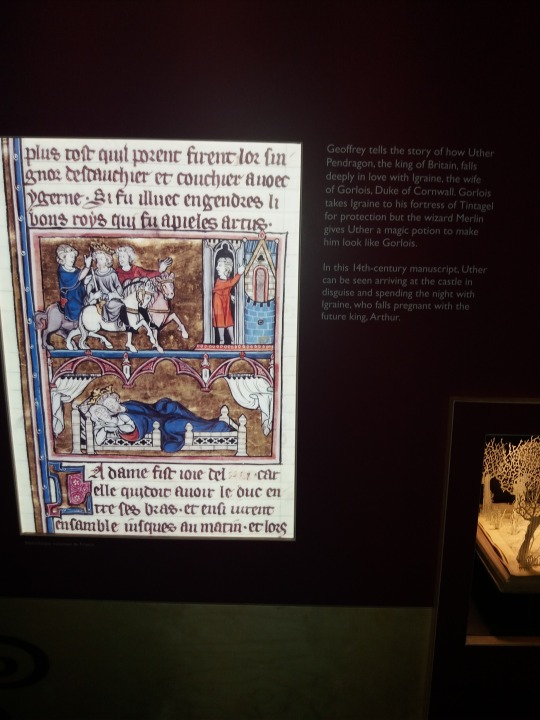 plus tost quil porent firent lor sin
gnor descauchier et couchier avoec
ygerne. Si fu illuec engendres li
bons roys qui fu apieles artus.
A dame fist ioie del car
elle quidoit auoir le duc en
tre ses bras. et ensi iurent
ensamble iusques au matin. et lors
Geoffrey tells the story of how Uther
Pendragon, the king of Britain, falls
deeply in love with Igraine, the wife
of Gorlois, Duke of Cornwall. Gorlois
takes Igraine to his fortress of Tintagel
for protection but the wizard Merlin
gives Uther a magic potion to make
him look like Gorlois.
In this 14th-century manuscript, Uther
can be seen arriving at the castle in
disguise and spending the night with
Igraine, who falls pregnant with the
future king, Arthur.